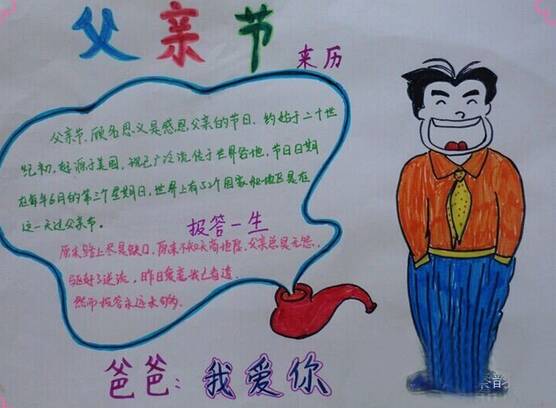 父亲节
来历
父亲节,顾名思义是感恩父亲的节日。约始于二十世
纪初,起源于美国,现已广泛流传于世界各地,节日日期
在每年6月的第三个星期日,世界上有52个国家和地区是在
这一天过父亲节。
报答一生
原来路上尽是缺口,原来不知天高地厚,父亲总是无怨,
了逆流,昨日我已看透
然而报答永远未够。
爸爸:我爱你